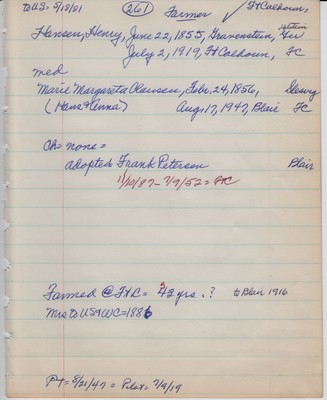 to U.S. 5/18/81 (261) Farmer ✓ Ft Calhoun,
Hansen, Henry, June 22, 1855, Gravenstein, Ger
July 2, 1919, Ft Calhoun, FC
med
Marie Margareta Clausen, Febr. 24, 1856,
(Hans & Anna) Aug. 17, 1947, Blair FC
Ch = none =
adopted Frank Petersen Blair
11/10/87 - 7/9/52 = FC
Farmed @ Ft C = 42 yrs. ? to Blair 1916
Mrs to US & WC = 1886
PT = 8/21/47 = Pilot = 7/9/19